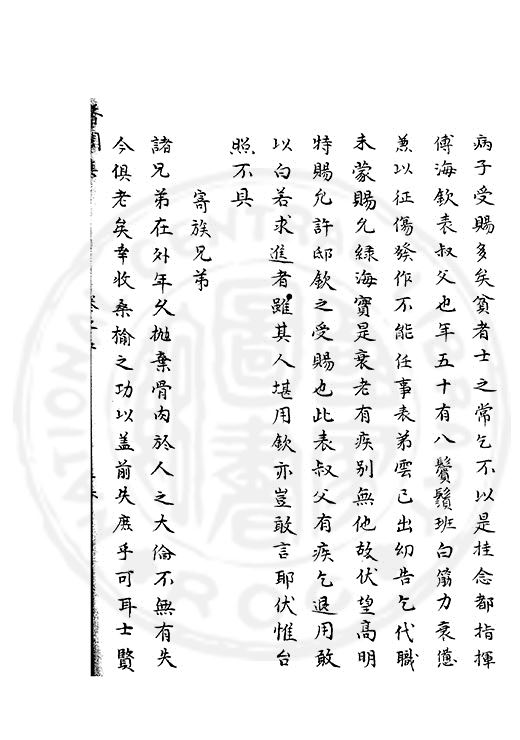 病子受賜多矣貧者士之常乞不以是挂念都指揮
傅海欽表叔父也年五十有八鬢鬚班白筋力衰憊
兼以征傷發作不能任事表弟雲已出幼告乞代職
未蒙賜允緣海實是衰老有疾別無他故伏望高明
特賜允許邱欽之受賜也此表叔父有疾乞退用敢
以白若求進者雖其人堪用欽亦豈敢言耶伏惟台
照不具
寄族兄弟
諸兄弟在外年久拋棄骨肉於人之大倫不無有失
今俱老矣幸收桑榆之功以盖前失庶乎可耳士賢